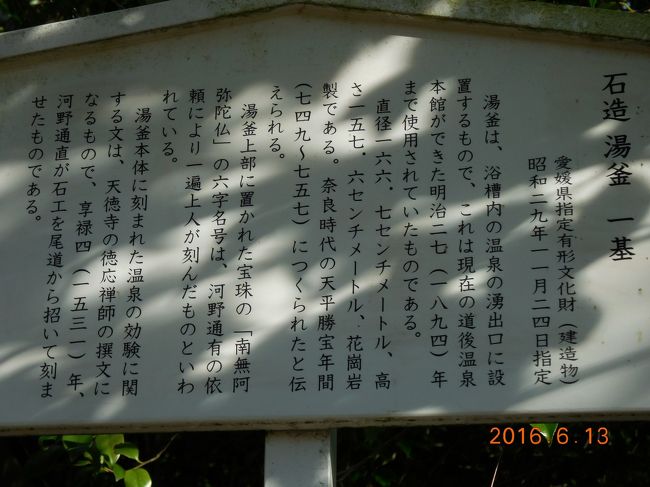 石造 湯釜 一基
愛媛県指定有形文化財（建造物）
昭和二九年一一月二四日指定
湯釜は、浴槽内の温泉の湧出口に設
置するもので、これは現在の道後温泉
本館ができた明治二七（一八九四）年
まで使用されていたものである。
直径一六六．七センチメートル、高
さ一五七．六センチメートル、花崗岩
製である。奈良時代の天平勝宝年間
（七四九〜七五七）につくられたと伝
えられる。
湯釜上部に置かれた宝珠の「南無阿
弥陀仏」の六字名号は、河野通有の依
頼により一遍上人が刻んだものといわ
れている。
湯釜本体に刻まれた温泉の効験に関
する文は、天徳寺の徳応禅師の撰文に
なるもので、享禄四（一五三一）年、
河野通直が石工を尾道から招いて刻ま
せたものである。
2016/6/13